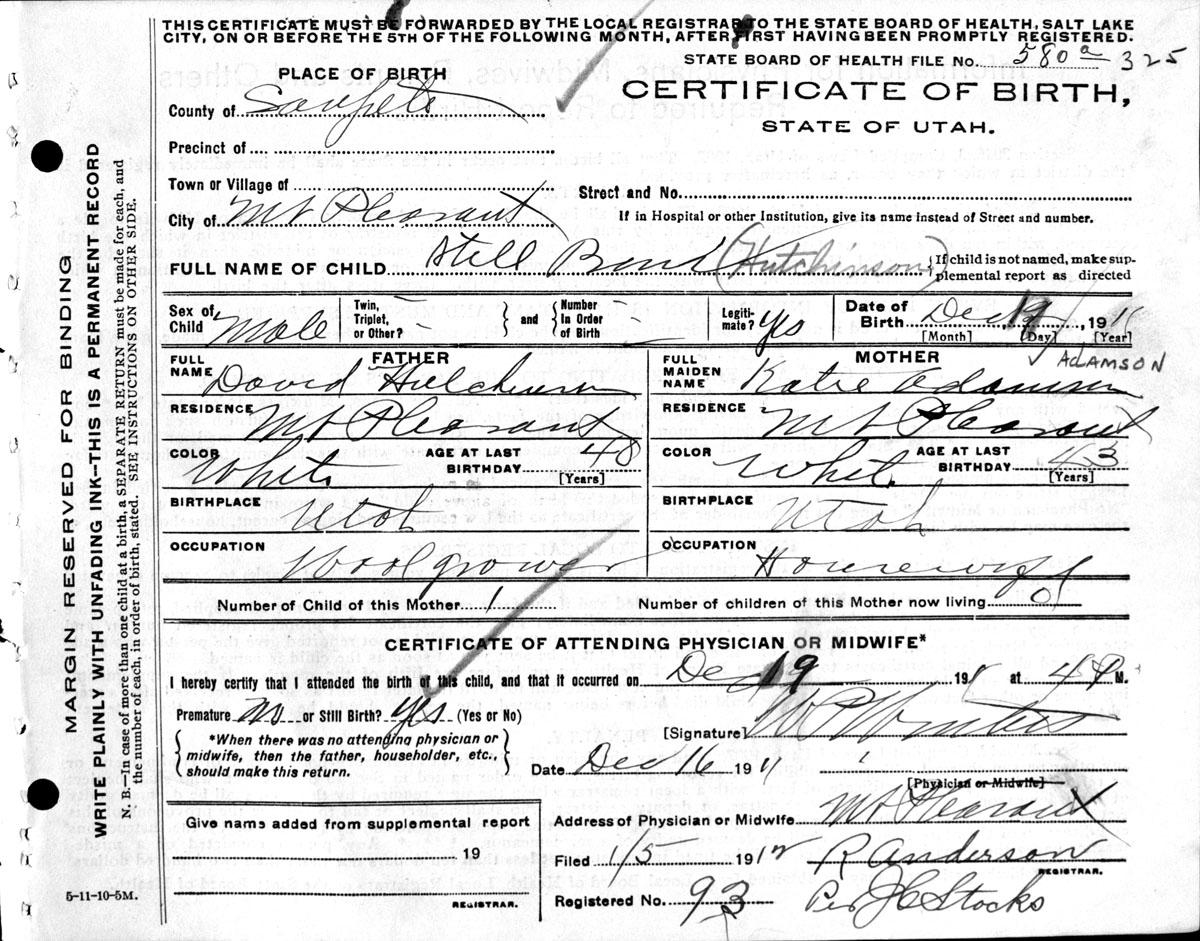 THIS CERTIFICATE MUST BE FORWARDED BY THE LOCAL REGISTRAR TO THE STATE BOARD OF HEALTH, SALT LAKE
CITY, ON OR BEFORE THE 5TH OF THE FOLLOWING MONTH, AFTER FIRST HAVING BEEN PROMPTLY REGISTERED.
STATE BOARD OF HEALTH FILE No. 580a 325
PLACE OF BIRTH
CERTIFICATE OF BIRTH,
STATE OF UTAH.
County of Sanpete
Precinct of
Town or Village of
Street and No.
City of Mt Pleasant
If in Hospital or other Institution, give its name instead of Street and number.
FULL NAME OF CHILD Still Born (Hutchinson)
{If child is not named, make supplemental report as directed
Sex of Child Male
Twin, Triplet, or Other? –
} and {
Number In Order of Birth –
Legitimate? yes
Date of Birth Dec 19, 1911
[Month] [Day] [Year]
FATHER
FULL NAME David Hutchinson
RESIDENCE Mt Pleasant
COLOR White
AGE AT LAST BIRTHDAY 48 [Years]
BIRTHPLACE Utah
OCCUPATION Woolgrower
MOTHER
ADAMSON
FULL MAIDEN NAME Katie Adamson
RESIDENCE Mt Pleasant
COLOR White
AGE AT LAST BIRTHDAY 43 [Years]
BIRTHPLACE Utah
OCCUPATION Housewife
Number of Child of this Mother 1
Number of children of this Mother now living 0
CERTIFICATE OF ATTENDING PHYSICIAN OR MIDWIFE*
I hereby certify that I attended the birth of this child, and that it occurred on Dec 19 191 at 4 M.
Premature no or Still Birth? yes (Yes or No)
{*When there was no attending physician or midwife, then the father, householder, etc., should make this return.}
[Signature] Winters
Date Dec 16 1911
[Physician or Midwife]
Give name added from supplemental report
19
REGISTRAR.
Address of Physician or Midwife Mt Pleasant
Filed 1/5 1912 R Anderson
REGISTRAR.
Registered No. 93 Per J C Stocks
5-11-10-5M.
MARGIN RESERVED FOR BINDING
WRITE PLAINLY WITH UNFADING INK—THIS IS A PERMANENT RECORD
N. B.—In case of more than one child at a birth, a SEPARATE RETURN must be made for each, and
the number of each, in order of birth, stated. SEE INSTRUCTIONS ON OTHER SIDE.